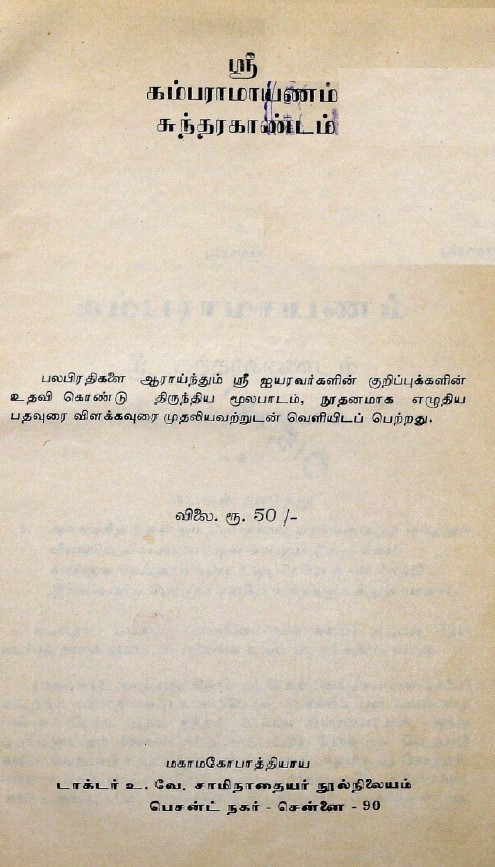 ஸ்ரீ
கம்பராமாயணம்
சுந்தரகாண்டம்
பலபிரதிகளை ஆராய்ந்தும் ஸ்ரீ ஐயரவர்களின் குறிப்புக்களின்
உதவி கொண்டு திருந்திய மூலபாடம், நூதனமாக எழுதிய
பதவுரை விளக்கவுரை முதலியவற்றுடன் வெளியிடப் பெற்றது.
விலை. ரூ. 50 /-
மகாமகோபாத்தியாய
டாக்டர் உ. வே. சாமிநாதையர் நூல்நிலையம்
பெசன்ட் நகர் - சென்னை - 90